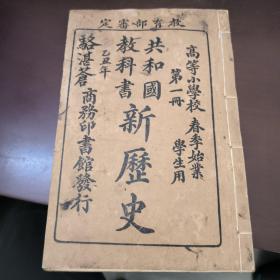 教育部審定
高等小學校 春季始業
第一冊 學生用
共和國
教科書
新歷史
乙丑年
駱湛蒼
商務印書館發行